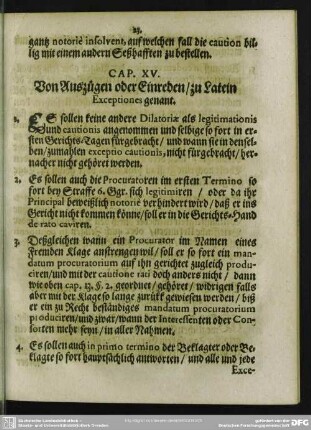 23.
gantz notoriè insolvent, auf welchen fall die caution bil-
lig mit einem andern Seßhafften zu bestellen.
CAP. XV.
Von Auszügen oder Einreden/zu Latein
Exceptiones genant.
1. ES sollen keine andere Dilatoriæ als legitimationis
und cautionis angenommen und selbige so fort in er-
sten Gerichts-Tagen fürgebracht/ und wann sie in densel-
ben/zumahlen exceptio cautionis, nicht fürgebracht/ her-
nacher nicht gehöret werden.
2. Es sollen auch die Procuratoren im ersten Termino so
fort bey Straffe 6. Ggr. sich legitimiren / oder da ihr
Principal beweißlich notoriè verhindert wird / daß er ins
Gericht nicht kommen könne/ soll er in die Gerichts-Hand
de rato caviren.
3. Deßgleichen wann ein Procurator im Namen eines
Fremden Klage anstrengen wil/ soll er so fort ein man-
datum procuratorium auf ihn gerichtet zugleich produ-
ciren/und mit der cautione rati doch anders nicht / dann
wie oben cap. 13. §. 2. geordnet / gehöret / widrigen falls
aber mit der Klage so lange zurück gewiesen werden / biß
er ein zu Recht beständiges mandatum procuratorium
produciren/und zwar/ wann der Interessenten oder Con-
sorten mehr seyn / in aller Nahmen.
4. Es sollen auch in primo termino der Beklagter oder Be-
klagte so fort hauptsächlich antworten / und alle und jede
Exce-